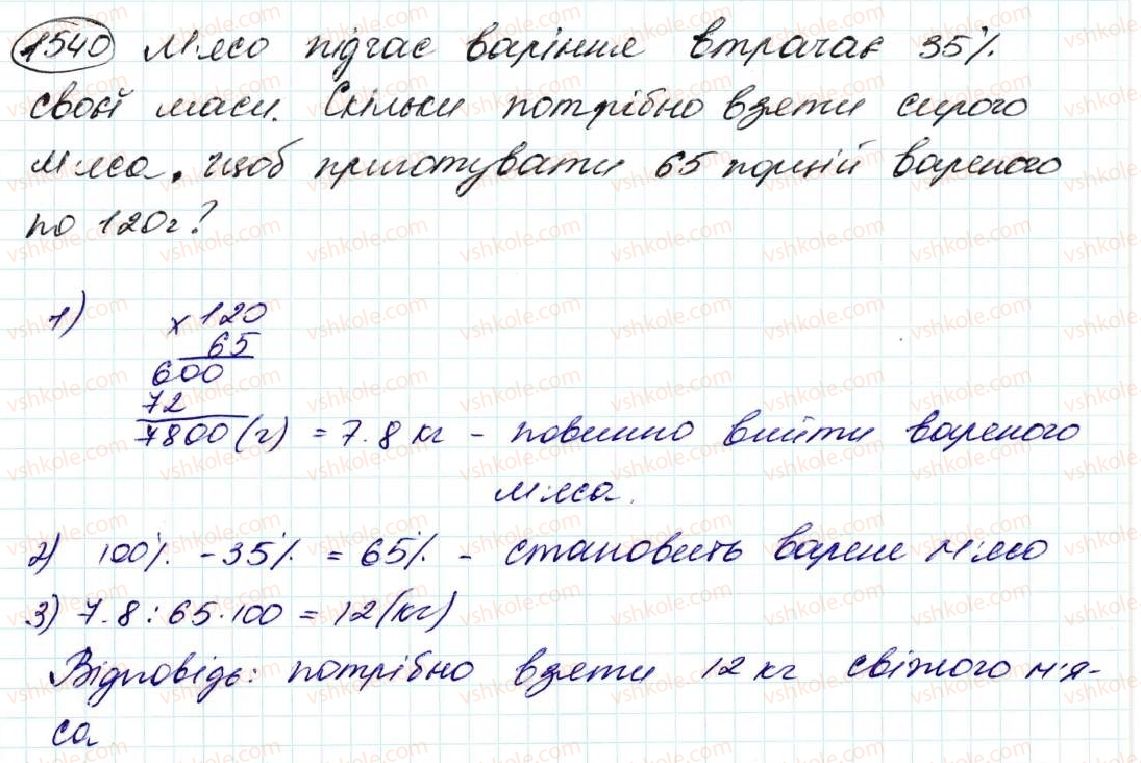 1540 М'ясо підчас варіння втрачає 35%
своєї маси. Скільки потрібно взяти сирого
м'яса, щоб приготувати 65 порцій вареного
по 120г?
1) х 120
65
600
72
7800 (г) = 7.8 кг - повинно вийти вареного
м'яса.
2) 100% - 35% = 65% - становить варене м'ясо
3) 7.8 : 65 · 100 = 12 (кг)
Відповідь: потрібно взяти 12 кг свіжого м'я-
са
vshkole.com